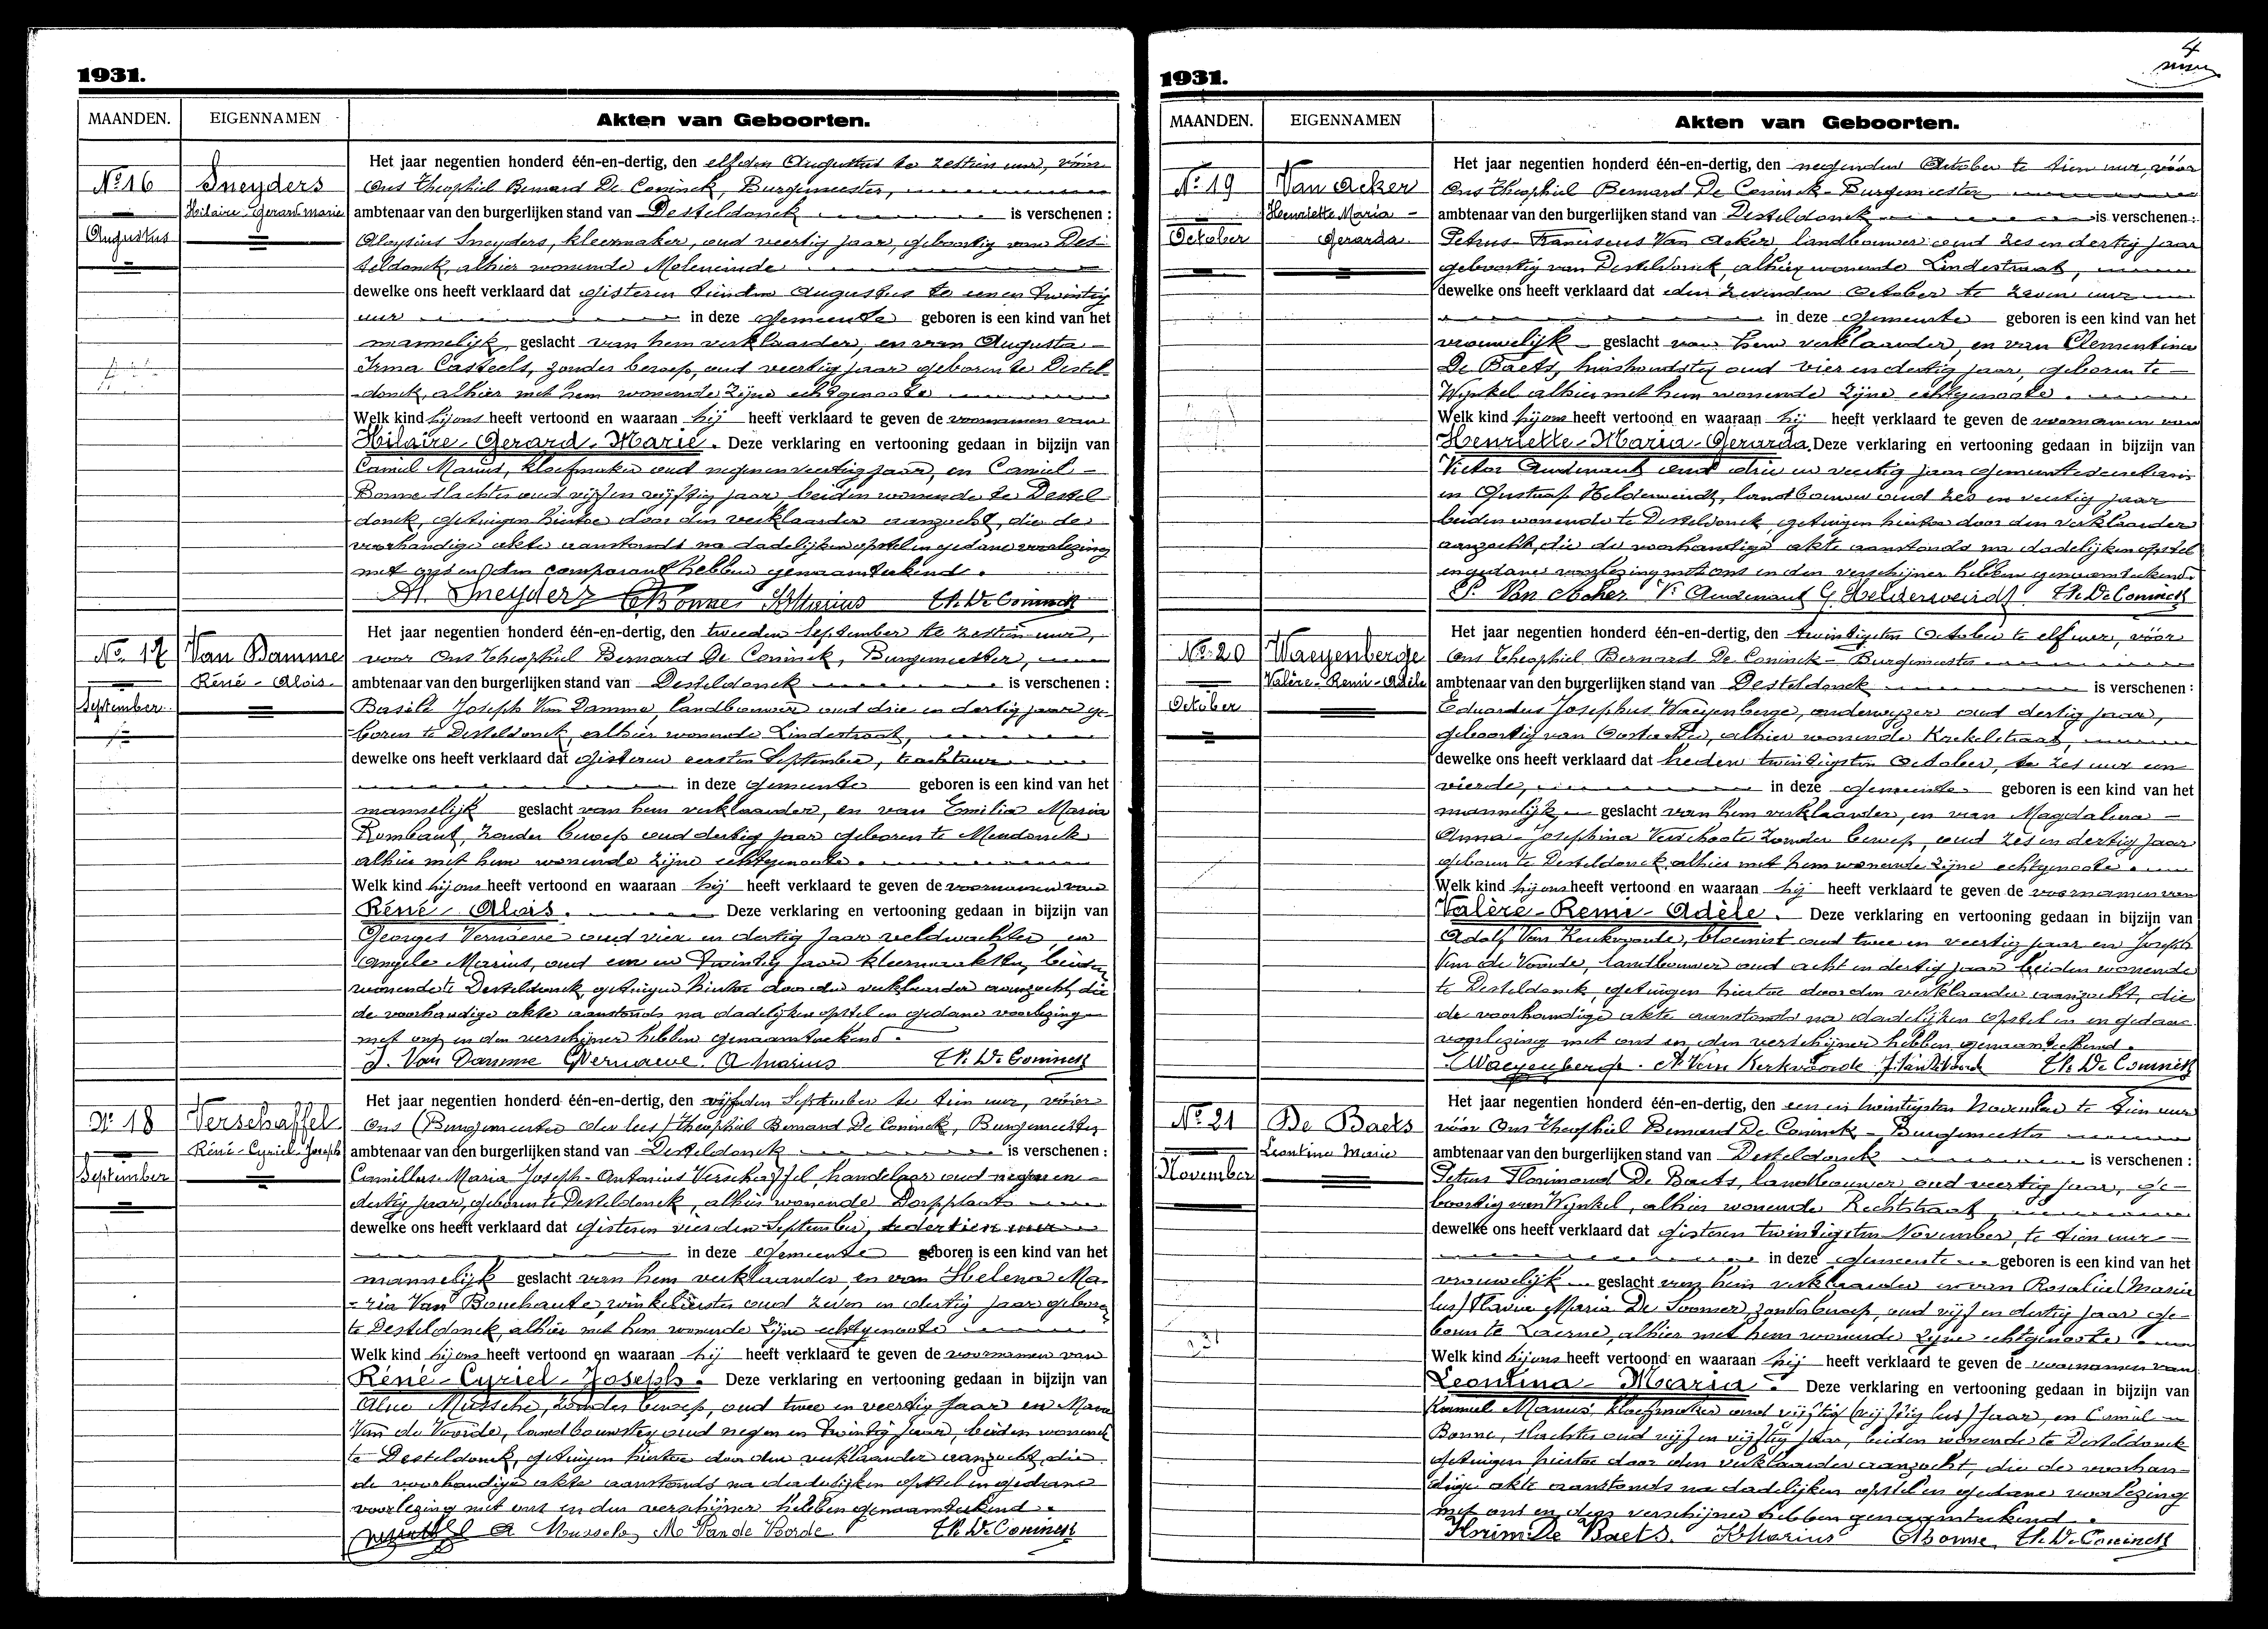 1931.
MAANDEN. EIGENNAMEN Akten van Geboorten.
Nº 16
Augustus
Sneyders
Hilaire-Gerard marie
Het jaar negentien honderd één-en-dertig, den elfden Augustus te zestien uur, vóór
Ons Theophiel Bernard De Coninck, Burgemeester,
ambtenaar van den burgerlijken stand van Desteldonck is verschenen :
Aloysius Sneyders, kleermaker, oud veertig jaar, geboortig van Des-
teldonck, alhier wonende Moleneinde
dewelke ons heeft verklaard dat gisteren tienden Augustus te eenen twintig
uur in deze gemeente geboren is een kind van het
mannelijk geslacht van hem verklaarder, en van Augusta -
Irma Casteels, zonder beroep, oud veertig jaar geboren te Destel-
donck, alhier met hem wonende zijne echtgenoote
Welk kind hij ons heeft vertoond en waaraan hij heeft verklaard te geven de voornamen van
Hilaire-Gerard-Marie. Deze verklaring en vertooning gedaan in bijzijn van
Camiel Marius, kloefmaker oud negenenveertig jaar, en Camiel -
Bonne slachter oud vijf en vijftig jaar, beiden wonende te Destel
donck, getuigen hiertoe door den verklaarder aanzocht, die de
voorhandige akte aanstonds na dadelijken opstel en gedane voorlezing
met ons en den comparant hebben genaamteekend.
Al. Sneyders CBonne KMarius Th. De Coninck
Nº 17
September
Van Damme
Réné - Alois.
Het jaar negentien honderd één-en-dertig, den tweeden September te zestien uur,
voor Ons Theophiel Bernard De Coninck, Burgemeester,
ambtenaar van den burgerlijken stand van Desteldonck is verschenen :
Basile Joseph Van Damme, landbouwer oud drie en dertig jaar ge-
boren te Desteldonck, alhier wonende Lindestraat,
dewelke ons heeft verklaard dat gisteren eersten September, te acht uur
in deze gemeente geboren is een kind van het
mannelijk geslacht van hem verklaarder, en van Emilia Maria
Rombaut, zonder beroep oud dertig jaar geboren te Mendonck
alhier met hem wonende zijne echtgenoote.
Welk kind hij ons heeft vertoond en waaraan hij heeft verklaard te geven de voornamen van
Réné - Alois. Deze verklaring en vertooning gedaan in bijzijn van
Georges Vernaeve oud vier en dertig jaar veldwachter, en
Angele Marius, oud een en twintig jaar kleermaakster, beiden
wonende te Desteldonck, getuigen hiertoe door den verklaarder aanzocht, die
de voorhandige akte aanstonds na dadelijken opstel en gedane voorlezing
met ons en den verschijner hebben genaamteekend.
J. Van Damme GVernaeve. A Marius Th. De Coninck
Nº 18
September
Verschaffel
Réné-Cyriel-Joseph
Het jaar negentien honderd één-en-dertig, den vijfden September te tien uur, vóór
Ons (Burgemeester der lees) Theophiel Bernard De Coninck, Burgemeester
ambtenaar van den burgerlijken stand van Desteldonck is verschenen :
Camillus-Maria Joseph-Antonius Verschaffel, handelaar oud negen en -
dertig jaar, geboren te Desteldonck, alhier wonende Dorpplaats
dewelke ons heeft verklaard dat gisteren vierden September, te dertien uur
in deze gemeente geboren is een kind van het
mannelijk geslacht van hem verklaarder, en van Helena Ma-
-ria Van Bouchaute, winkelierster oud zeven en dertig jaar geboren
te Desteldonck, alhier met hem wonende zijne echtgenoote
Welk kind hij ons heeft vertoond en waaraan hij heeft verklaard te geven de voornamen van
Réné-Cyriel-Joseph. Deze verklaring en vertooning gedaan in bijzijn van
Mussche, zonder beroep, oud twee en veertig jaar en Maria
Van de Voorde, landbouwster oud negen en twintig jaar, beiden wonende
te Desteldonck, getuigen hiertoe door den verklaarder aanzocht, die
de voorhandige akte aanstonds na dadelijken opstel en gedane
voorlezing met ons en den verschijner hebben genaamteekend.
A Mussche M Van de Voorde Th. De Coninck
4
1931.
MAANDEN. EIGENNAMEN Akten van Geboorten.
Nº 19
October
Van Acker
Henriette Maria -
Gerarda.
Het jaar negentien honderd één-en-dertig, den negenden October te tien uur, vóór
Ons Theophiel Bernard De Coninck - Burgemeester
ambtenaar van den burgerlijken stand van Desteldonck is verschenen :
Petrus-Franciscus Van Acker, landbouwer oud zes en dertig jaar
geboortig van Desteldonck, alhier wonende Lindestraat,
dewelke ons heeft verklaard dat den zevenden October te zeven uur
in deze gemeente geboren is een kind van het
vrouwelijk geslacht van hem verklaarder, en van Clementina
De Baets, huishoudster oud vier en dertig jaar, geboren te -
Wynkel alhier met hem wonende zijne echtgenoote.
Welk kind hij ons heeft vertoond en waaraan hij heeft verklaard te geven de voornamen van
Henriette-Maria-Gerarda. Deze verklaring en vertooning gedaan in bijzijn van
Victor Audenaert oud drie en veertig jaar gemeentesecretaris
en Gustaaf Helderweirdt, landbouwer oud zes en veertig jaar
beiden wonende te Desteldonck getuigen hiertoe door den verklaarder
aanzocht, die de voorhandige akte aanstonds na dadelijken opstel
en gedane voorlezing met ons en den verschijner hebben genaamteekend.
P. Van Acker V. Audenaert G. Helderweirdt Th. De Coninck
Nº 20
October
Waeyenberge
Valère-Remi-Adèle
Het jaar negentien honderd één-en-dertig, den twintigsten October te elf uur, vóór
Ons Theophiel Bernard De Coninck - Burgemeester
ambtenaar van den burgerlijken stand van Desteldonck is verschenen :
Eduardus Josephus Waeyenberge, onderwyzer oud dertig jaar,
geboortig van Oostacker, alhier wonende Krekelstraat,
dewelke ons heeft verklaard dat heden twintigsten October, te zes uur een
vierde, in deze gemeente geboren is een kind van het
mannelijk geslacht van hem verklaarder, en van Magdalena -
Anna-Josephina Verschoote zonder beroep, oud zes en dertig jaar
geboren te Desteldonck alhier met hem wonende zijne echtgenoote.
Welk kind hij ons heeft vertoond en waaraan hij heeft verklaard te geven de voornamen van
Valère-Remi-Adèle. Deze verklaring en vertooning gedaan in bijzijn van
Adolf Van Kerkvoorde, bloemist oud twee en veertig jaar en Joseph
Van de Voorde, landbouwer oud acht en dertig jaar beiden wonende
te Desteldonck, getuigen hiertoe door den verklaarder aanzocht, die
de voorhandige akte aanstonds na dadelijken opstel en en gedane
voorlezing met ons en den verschijner hebben genaamteekend.
Waeyenberge. A. Van Kerkvoorde J. Van de Voorde Th. De Coninck
Nº 21
November
De Baets
Leontina Marie
Het jaar negentien honderd één-en-dertig, den een en twintigsten November te tien uur
vóór Ons Theophiel Bernard De Coninck - Burgemeester
ambtenaar van den burgerlijken stand van Desteldonck is verschenen :
Petrus Florimond De Baets, landbouwer oud veertig jaar, ge-
boortig van Wynkel, alhier wonende Rechtstraat,
dewelke ons heeft verklaard dat gisteren twintigsten November, te tien uur -
in deze gemeente geboren is een kind van het
vrouwelijk geslacht van hem verklaarder en van Rosalie (Maria
lees) Flavie Maria De Soomer, zonder beroep, oud vijf en dertig jaar ge-
boren te Laerne, alhier met hem wonende zijne echtgenoote.
Welk kind hij ons heeft vertoond en waaraan hij heeft verklaard te geven de voornamen van
Leontina - Maria. Deze verklaring en vertooning gedaan in bijzijn van
Kamiel Marius, kloefmaker oud vijftig (vijftig lees) jaar, en Camiel
Bonne, slachter oud vijf en vijftig jaar, beiden wonende te Desteldonck
getuigen hiertoe door den verklaarder aanzocht, die de voorhan-
dige akte aanstonds na dadelijken opstel en gedane voorlezing
met ons en den verschijner hebben genaamteekend.
Florim. De Baets. KMarius CBonne Th. De Coninck